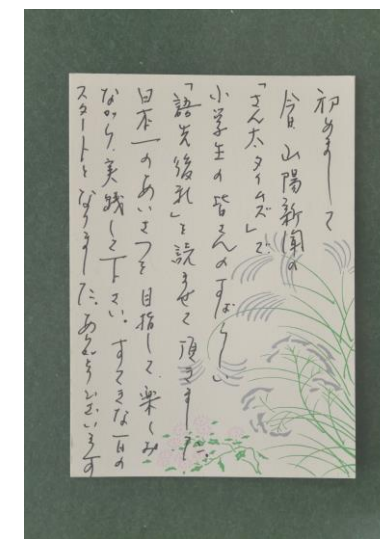 初めまして
今日、山陽新聞の
「さん太タイムズ」で、
小学生の皆さんのすばらしい
「語先後礼」を読ませて頂きました。
日本一のあいさつを目指して、楽しみ
ながら、実践して下さい。すてきな一日の
スタートとなりました。ありがとうございます